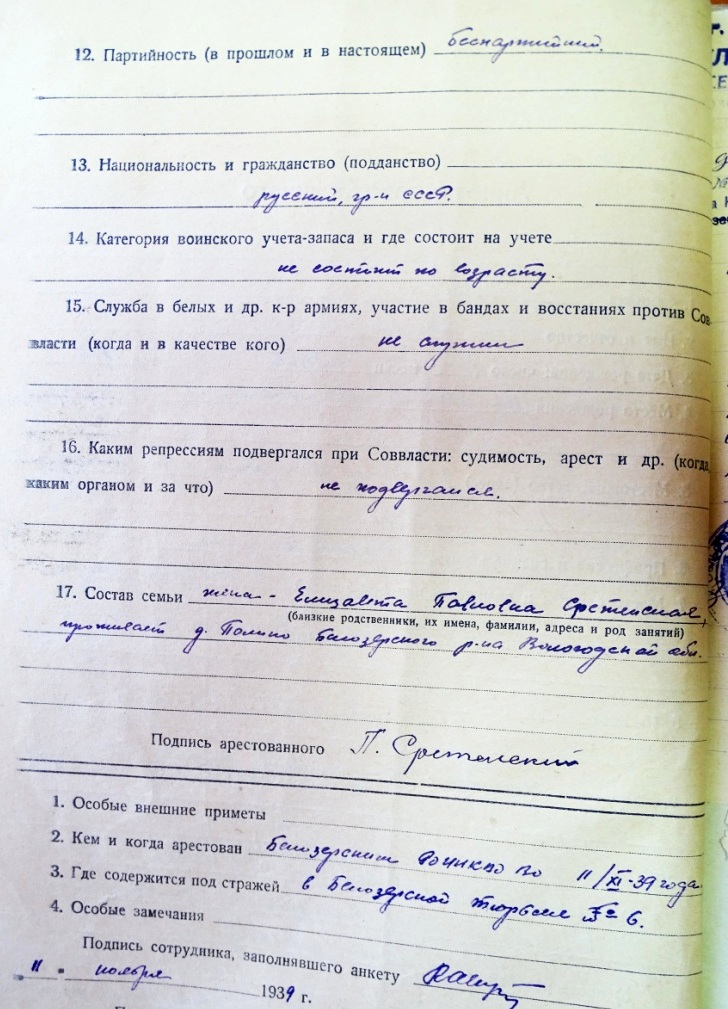 12. Партийность (в прошлом и в настоящем) беспартийный.
13. Национальность и гражданство (подданство)
русский, гр-н СССР.
14. Категория воинского учета-запаса и где состоит на учете
не состоит по возрасту.
15. Служба в белых и др. к-р армиях, участие в бандах и восстаниях против Сов-
власти (когда и в качестве кого) не служил
16. Каким репрессиям подвергался при Соввласти: судимость, арест и др. (когда,
каким органом и за что) не подвергался.
17. Состав семьи жена - Елизавета Павловна Сретенская,
(близкие родственники, их имена, фамилии, адреса и род занятий)
проживает д. Белозерского р-на Вологодской обл.
Подпись арестованного П. Сретенский
1. Особые внешние приметы
2. Кем и когда арестован Белозерским РОНКВД ВО 11/XI-39 года
3. Где содержится под стражей в Белозерской тюрьме № 6.
4. Особые замечания
Подпись сотрудника, заполнявшего анкету
"11" ноября 1939 г.